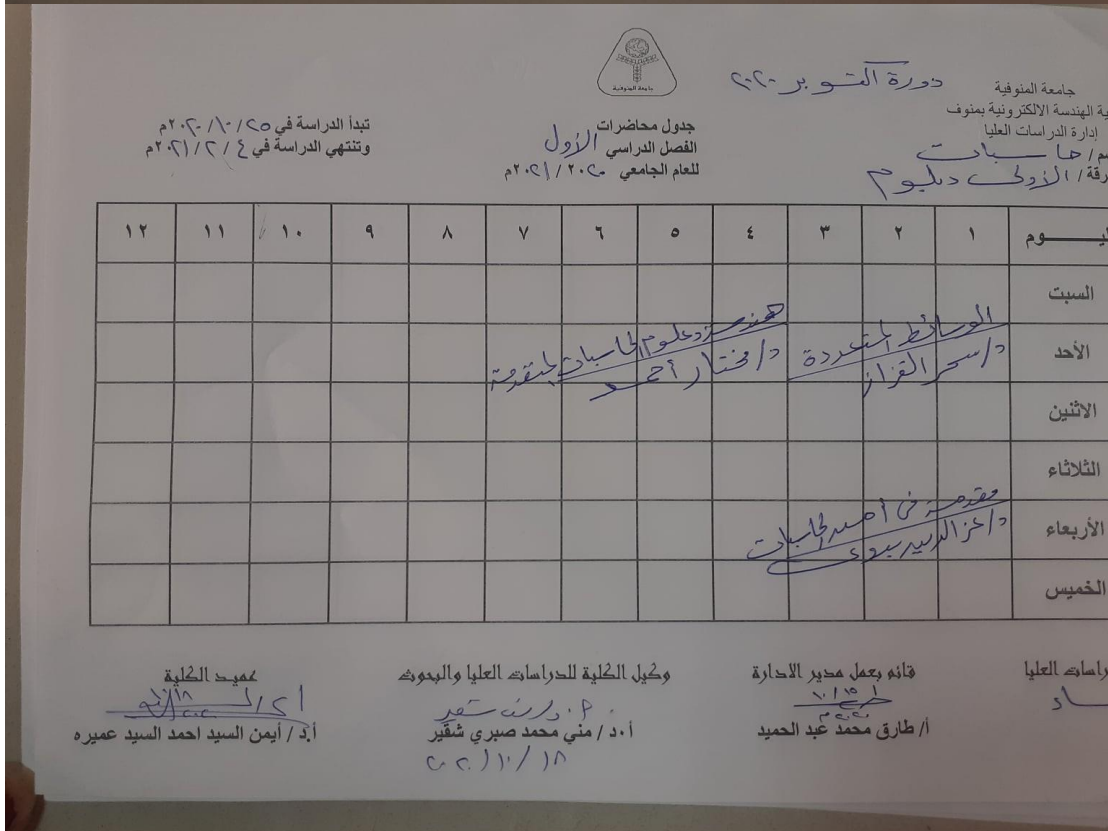 جامعة المنوفية
دورة اكتوبر ٢٠٢٠
جامعة المنوفية
ية الهندسة الالكترونية بمنوف
إدارة الدراسات العليا
سم / حاسبات
رقة / الأولى دبلوم
جدول محاضرات
الفصل الدراسي الأول
للعام الجامعي ٢٠٢٠ / ٢٠٢١م
تبدأ الدراسة في ٢٥ / ١٠ / ٢٠٢٠م
وتنتهي الدراسة في ٤ / ٢ / ٢٠٢١م
ليـــــوم ١ ٢ ٣ ٤ ٥ ٦ ٧ ٨ ٩ ١٠ ١١ ١٢
السبت
الأحد
الوسائط المتعددة
د/ سحر القزاز
هندسة وعلوم الحاسبات المتقدمة
د/ مختار أحمد
الاثنين
الثلاثاء
الأربعاء
مقدمة فى الحاسبات
د/ عز الدين بدوى
الخميس
راسات العليا
قائم بعمل مدير الادارة
أ/ طارق محمد عبد الحميد
وكيل الكلية للدراسات العليا والبحوث
أ.د / مني محمد صبري شقير
٢٠٢٠/١٠/١٨
عميد الكلية
أ.د / أيمن السيد احمد السيد عميره